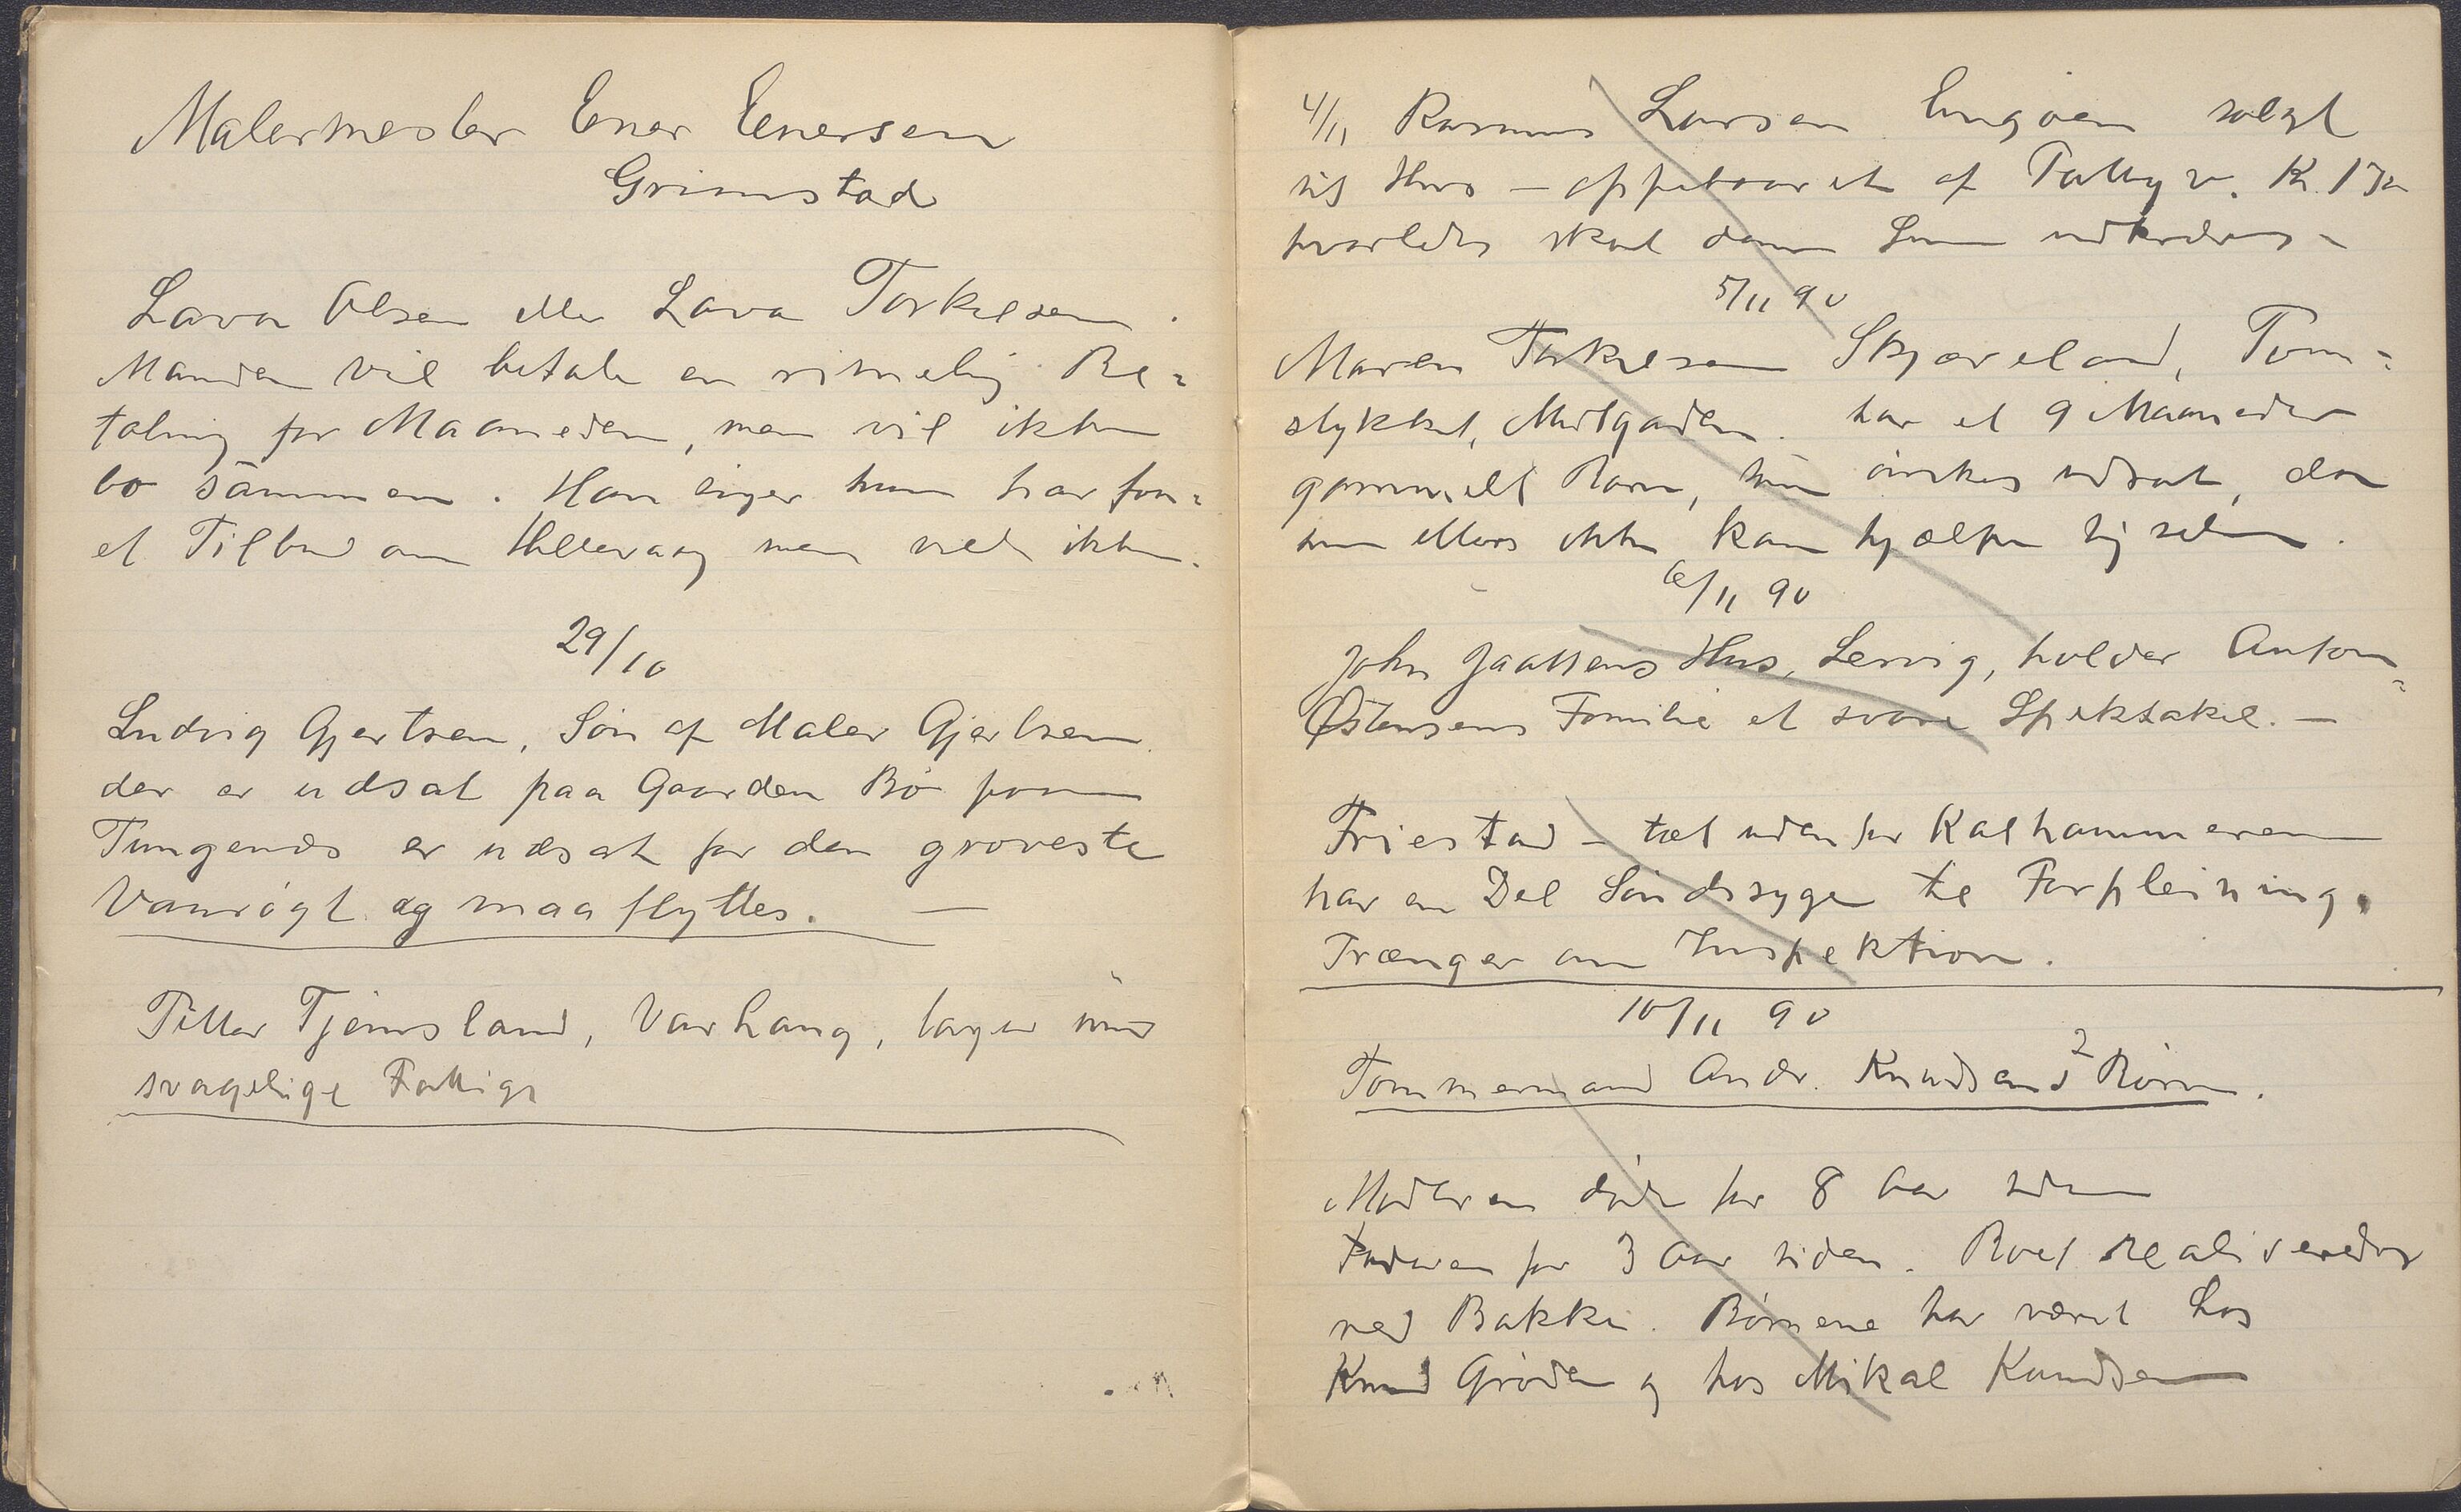 Malermester Ener Enersen
Grimstad
Lava Olsen eller Lava Torkelsen.
Manden vil betale en rimelig Be=
taling for Maaneden, men vil ikke
bo sammen. Han siger hun har faa=
et Tilbud om Hillevaag men vil ikke.
29/10
Ludvig Gjertsen, Søn af Maler Gjertsen
der er udsat paa Gaarden Bø paa
Tungenæs er udsat for den groveste
Vanrøgt og maa flyttes. —
Pitter Tjemsland, Varhaug, tager imod
svagelige Fattige
4/11 Rasmus Larsen Engøen solgt
sit Hus — oppebaaret af Fattigv. Kr.
skal denne Sum
5/11 90
Maren Torkelsen Skjæveland, Tom=
stykket, Midtgaden. har et 9 Maaneder
gammelt Barn, som ønskes udsat, da
hun ellers ikke kan hjælpe sig selv.
6/11 90
John Jaattens Hus, Lervig, holder Anton
Østensens Familie et svare Spektakel. —
Friestad — tæt udenfor Kalhammeren
har en Del Sindssyge til Forpleining.
Trænger om Inspektion.
10/11 90
Tømmermand Andr. Knudsens 2 Børn.
Moderen døde for 8 Aar siden
Faderen for 3 Aar siden. Boet realiseredes
ved Bakke. Børnene har været hos
Knud Grøden og hos Mikal Knudsen